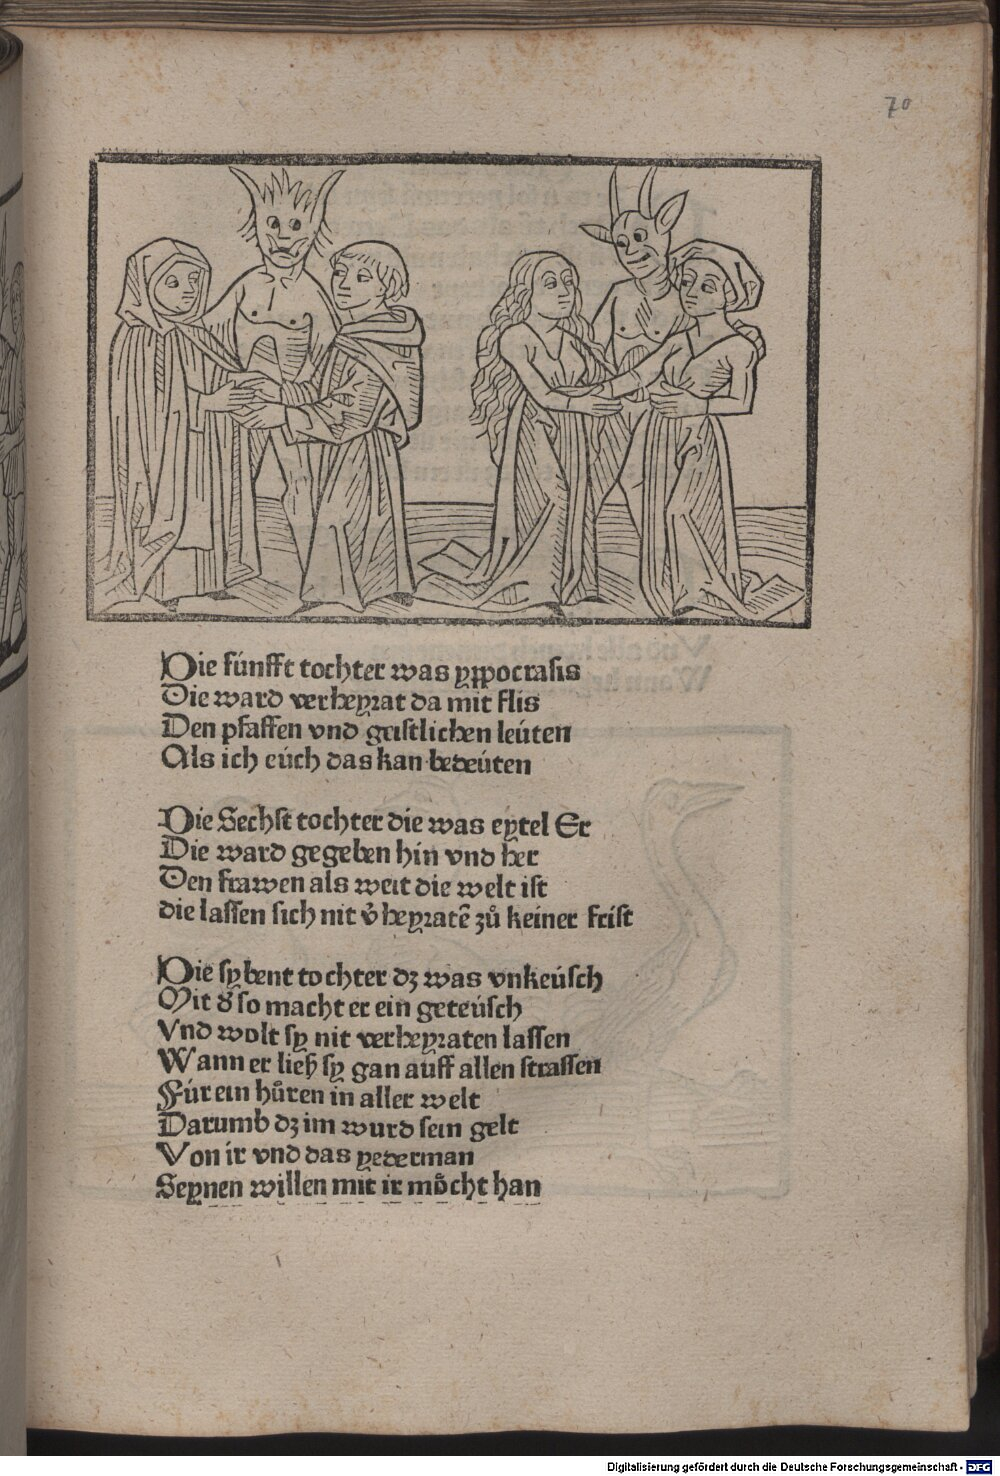 70
Die fúnfft tochter was yppocrasis
Die ward verheyrat da mit flis
Den pfaffen vnd geistlichen leúten
Als ich eúch das kan bedeúten
Die Sechst tochter die was eytel Er
Die ward gegeben hin vnd her
Den frawen als weit die welt ist
die lassen sich nit v̉heyratē zů keiner frist
Die sybent tochter dz was vnkeúsch
Mit d̉ so macht er ein geteúsch
Vnd wolt sy nit verheyraten lassen
Wann er ließ sy gan auff allen strassen
Fúr ein hůren in aller welt
Darumb dz im wurd sein gelt
Von ir vnd das yederman
Seynen willen mit ir mȯcht han
Digitalisierung gefördert durch die Deutsche Forschungsgemeinschaft - DFG